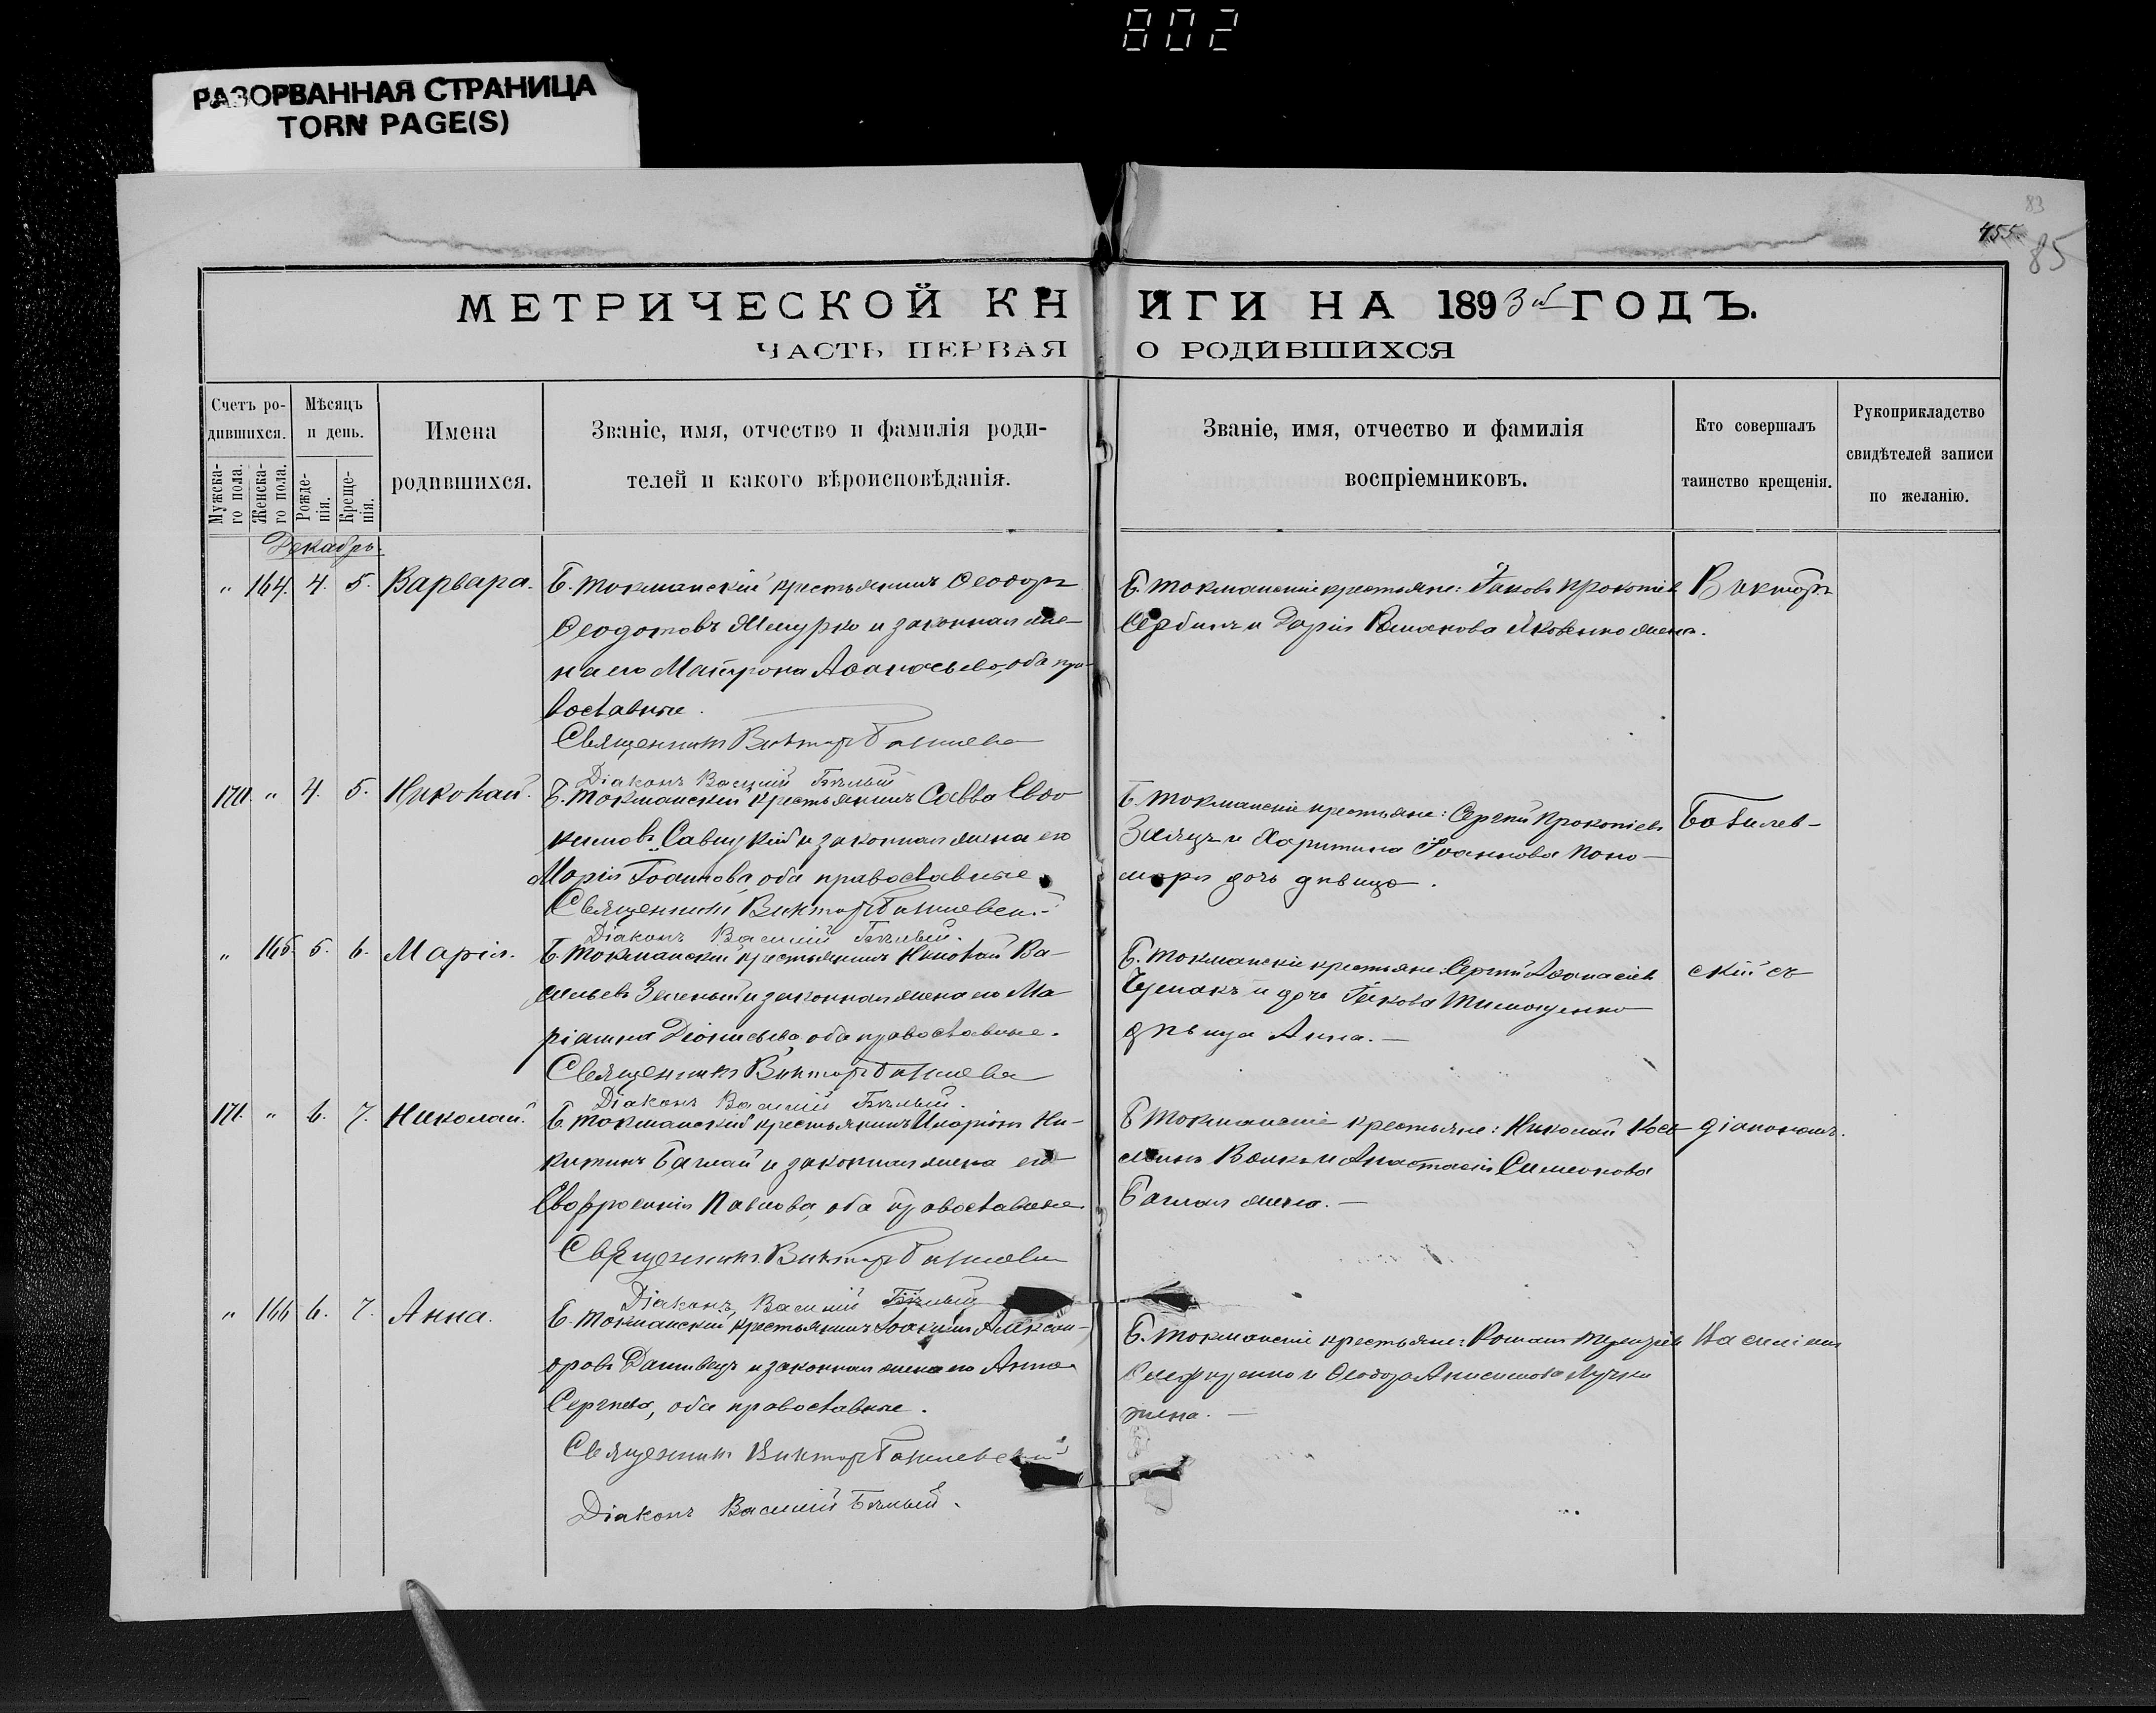 802
РАЗОРВАННАЯ СТРАНИЦА
TORN PAGE(S)
83
455
85
МЕТРИЧЕСКОЙ КНИГИ НА 1893й ГОДЪ.
ЧАСТЬ ПЕРВАЯ О РОДИВШИХСЯ
Счетъ ро-
дившихся.
Мужска-
го пола.
Женска-
го пола.
Мѣсяцъ
и день.
Рожде-
нія.
Креще-
нія.
Имена
родившихся.
Званіе, имя, отчество и фамилія роди-
телей и какого вѣроисповѣданія.
Званіе, имя, отчество и фамилія
воспріемниковъ.
Кто совершалъ
таинство крещенія.
Рукоприкладство
свидѣтелей записи
по желанію.
Декабрь.
" 164. 4. 5. Варвара. Б. Токманскій крестьянинъ Ѳеодоръ
Ѳеодотовъ и законная же-
на его Матрона Аѳанасьева, оба пра-
вославные.
Священникъ Викторъ
Діаконъ Василій Бѣлый
Б. Токманскіе крестьяне: Іаковъ Прокопіевъ
Сербинъ и Дарія Романова Яковенко жена.
Викторъ
170. " 4. 5. Николай. Б. Токманскій крестьянинъ Савва Евѳи
кимовъ Савицкій и законная жена его
Марія Іоаннова, оба православные.
Священникъ Викторъ
Діаконъ Василій Бѣлый.
Б. Токманскіе крестьяне: Сергій Прокопіевъ
Заяцъ и Харитина Іоаннова Поно-
маря дочь дѣвица.
" 165. 5. 6. Марія. Б. Токманскій крестьянинъ Николай Ва-
сильевъ Зеленый и законная жена его Ма
ріанна Діонисьева оба православные.
Священникъ Викторъ
Діаконъ Василій Бѣлый.
Б. Токманскіе крестьяне: Сергій Аѳанасіевъ
Чумакъ и дочь Іакова Тимощенко
дѣвица Анна.
скій съ
171. " 6. 7. Николай. Б. Токманскій крестьянинъ Иларіонъ Ни-
китинъ Баглай и законная жена его
Евфросинія Павлова, оба православные
Священникъ Викторъ
Діаконъ Василій Бѣлый
Б. Токманскіе крестьяне: Николай Кось
минъ Волкъ и Анастасія Симеонова
Баглая жена.
діакономъ.
" 166 6. 7. Анна. Б. Токманскій крестьянинъ Іоакимъ Алексан-
дровъ и законная жена его Анна
Сергѣева, оба православные.
Священникъ Викторъ
Діаконъ Василій Бѣлый.
Б. Токманскіе крестьяне: Романъ Терентіевъ
и Ѳеодора Анисимова
жена.
Василіемъ